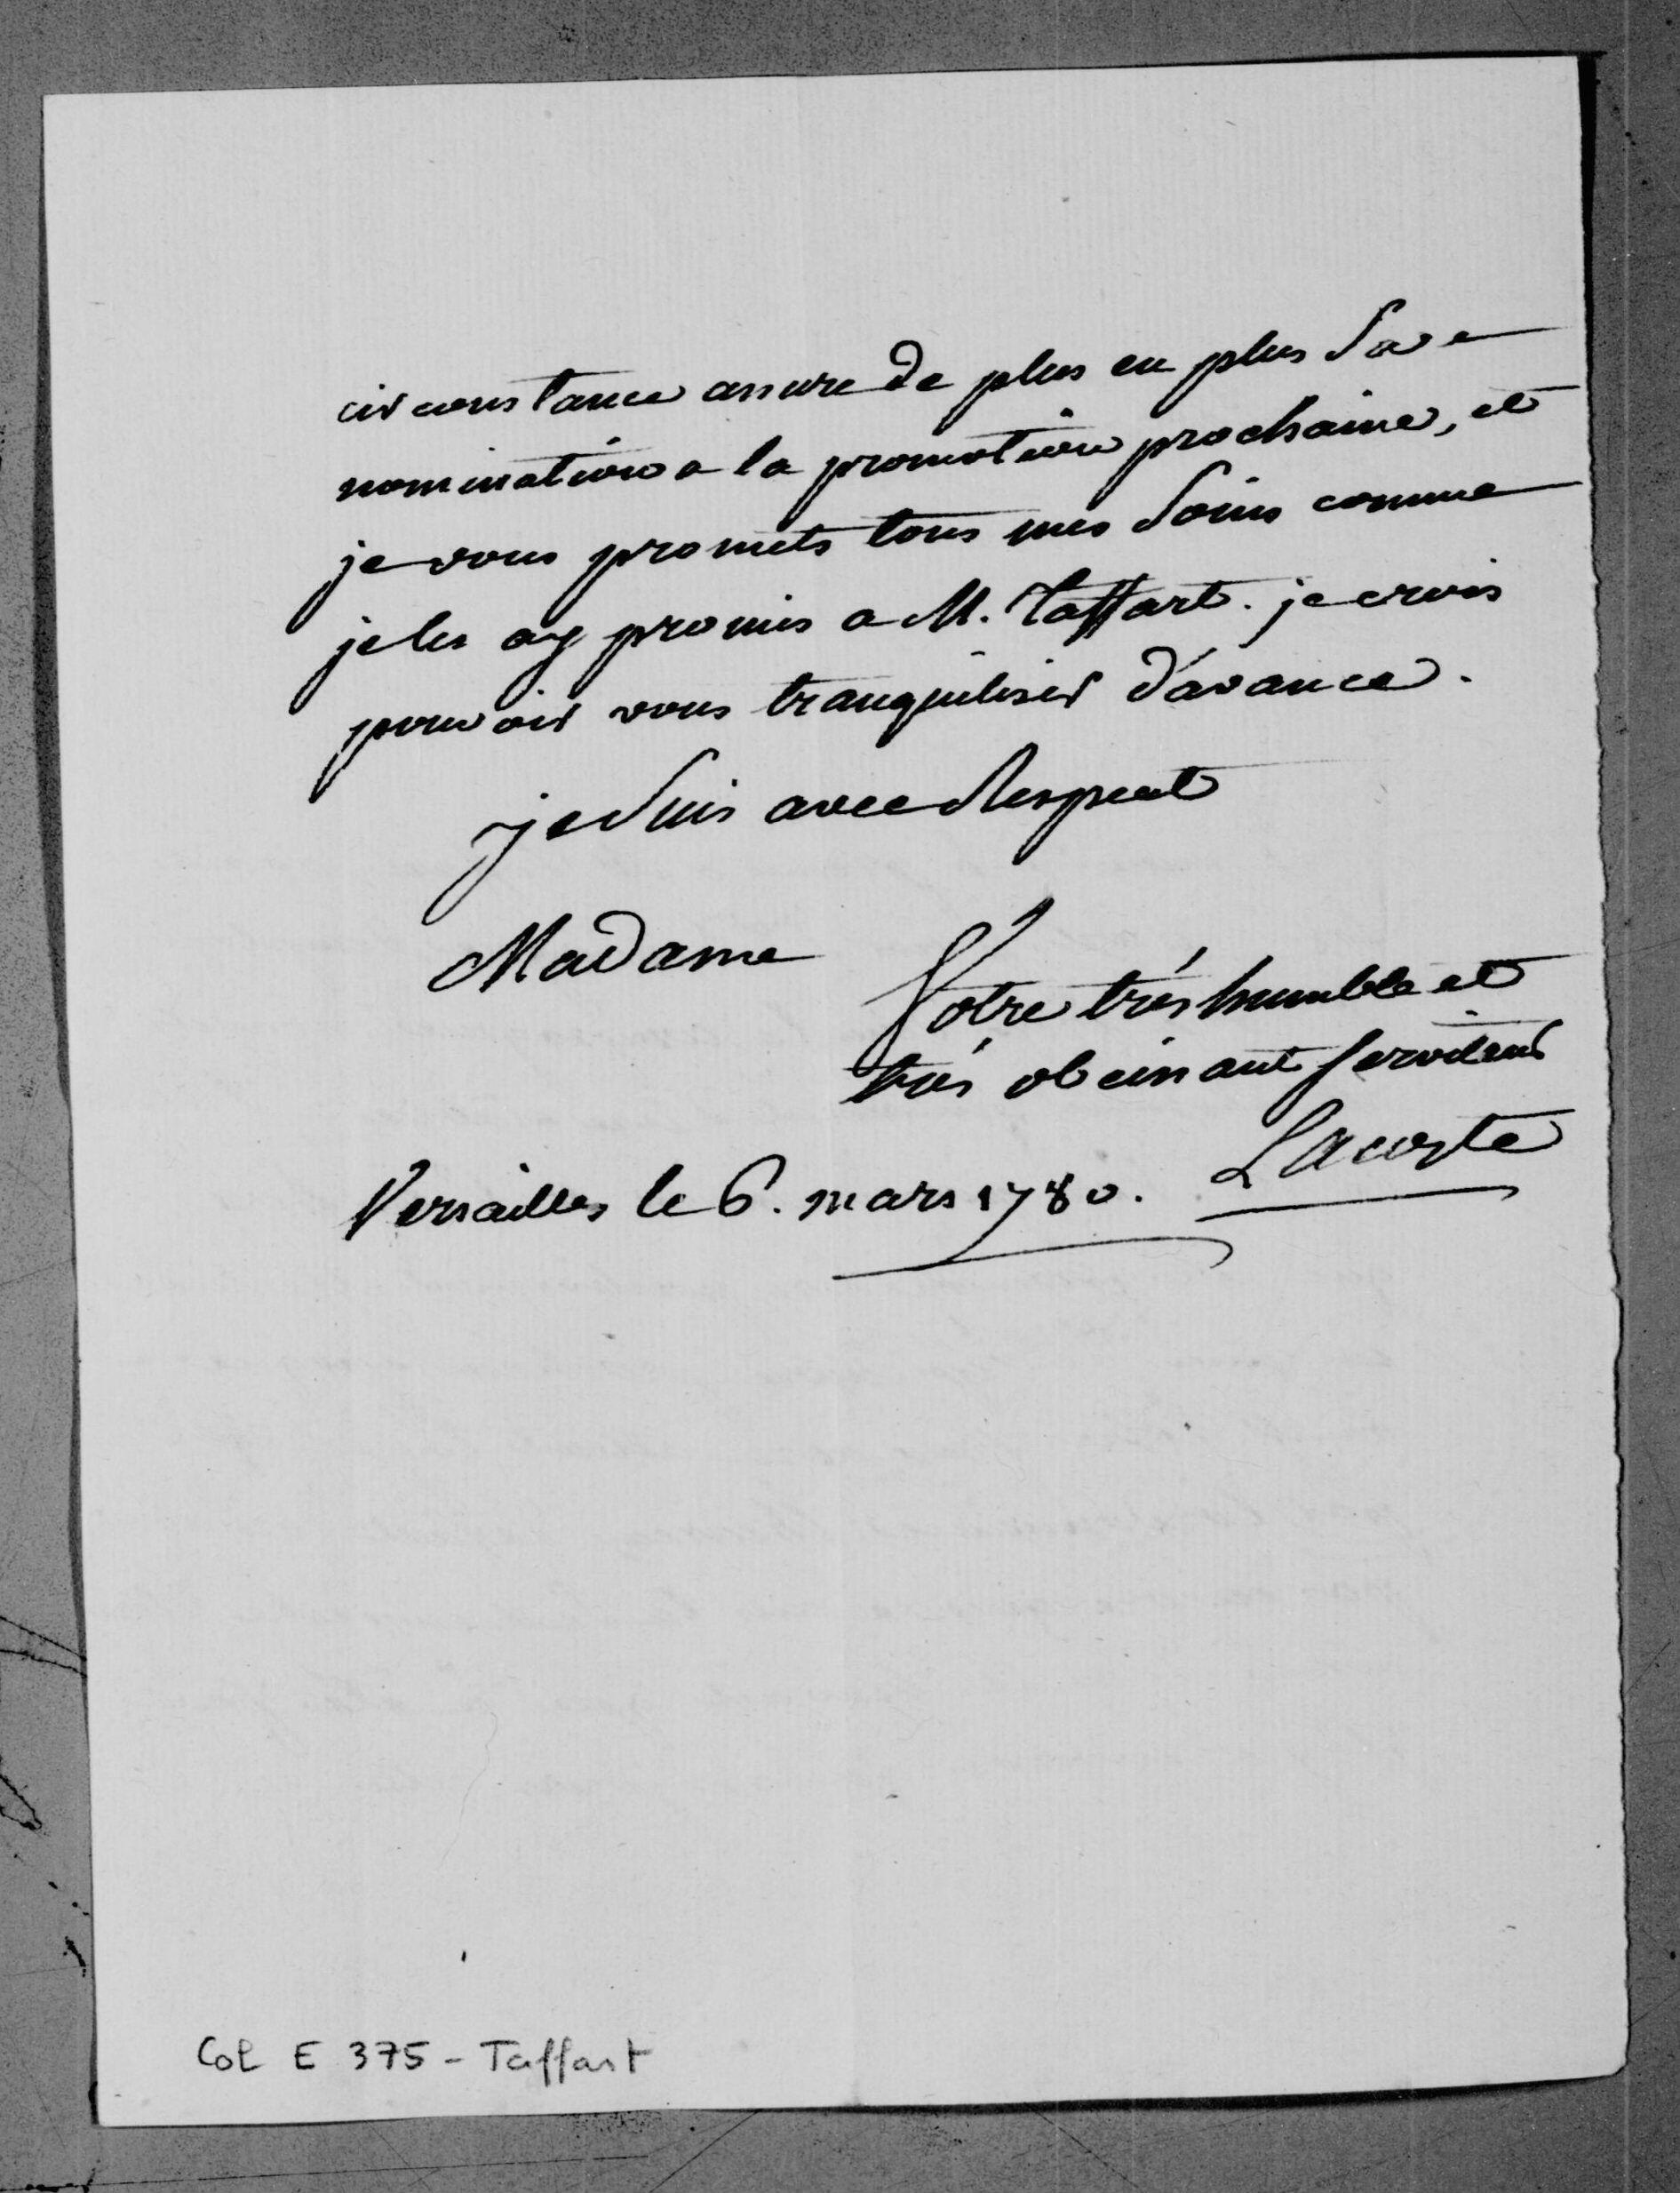 circonstance assure de plus en plus Sa
nomination a la promotion prochaine, et
je vous promets tous mes Soins comme
je les ay promis a M. Taffart. je crois
pouvoir vous tranquiliser d'avance.
je Suis avec Respect
Madame
Votre trés humble et
trés obeissant serviteur
Lacoste
Versailles le 6. mars 1780.
Col E 375 - Taffart